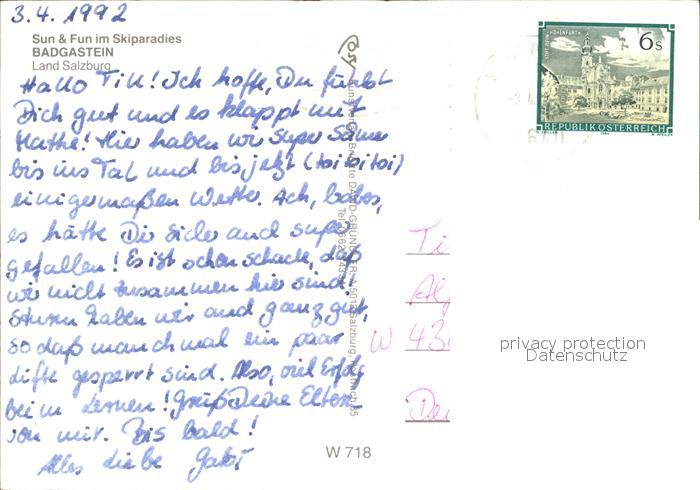 3.4.1992
Sun & Fun im Skiparadies
BADGASTEIN
Land Salzburg
Hallo Till! Ich hoffe, Du fühlst
Dich gut und es klappt mit
Mathe! Hier haben wir super Schnee
bis ins Tal und bis jetzt (toi toi toi)
einigermaßen Wetter. Ach,
es hätte Dir sicher auch super
gefallen! Es ist schon schade, daß
wir nicht zusammen hier sind!
Sturm haben wir auch ganz gut,
so daß manchmal ein paar
Lifte gesperrt sind. Also, viel Erfolg
beim Lernen! Grüß Deine Eltern
von mir. Bis bald!
Alles Liebe
W 718
6s
REPUBLIK ÖSTERREICH
Ti
Al
W 43
privacy protection
Datenschutz